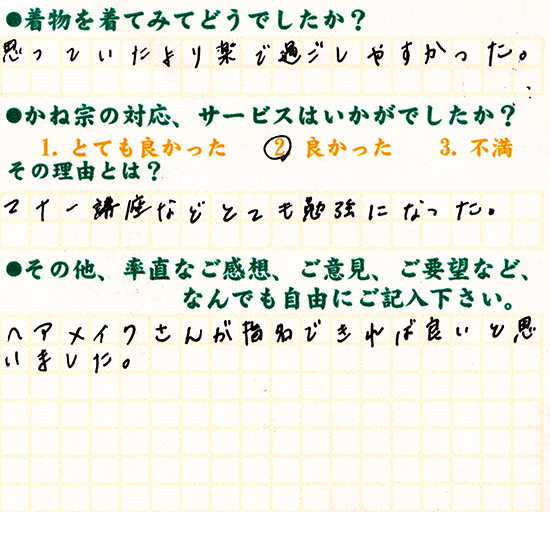 ●着物を着てみてどうでしたか？
思っていたより楽で過ごしやすかった。
●かね宗の対応、サービスはいかがでしたか？
1. とても良かった　②良かった　3. 不満
その理由とは？
マナー講座などとても勉強になった。
●その他、率直なご感想、ご意見、ご要望など、
なんでも自由にご記入下さい。
ヘアメイクさんが指名できれば良いと思
いました。